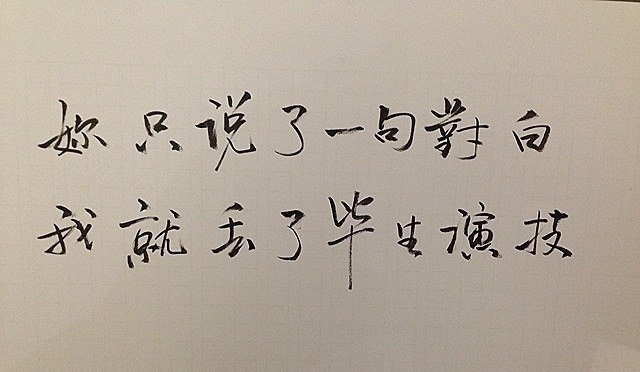 妳只说了一句對白
我就丢了毕生演技